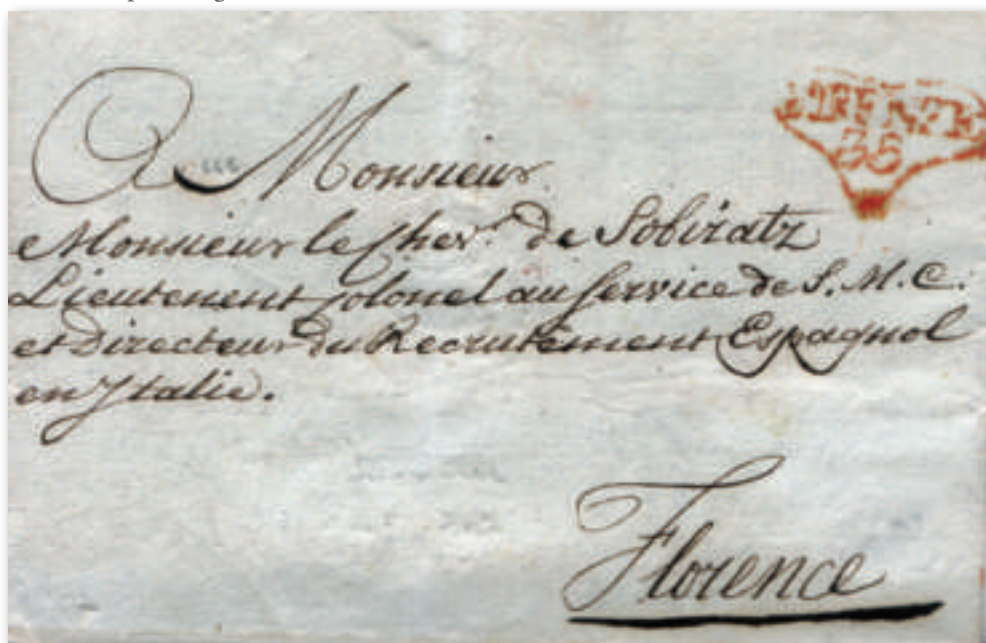 FIRENZE
35
A Monsieur
Monsieur le Cher. de Sobiratz
Lieutenent Colonel au Service de S. M. C.
et Directeur du Recrutement Espagnol
en Italie.
Florence